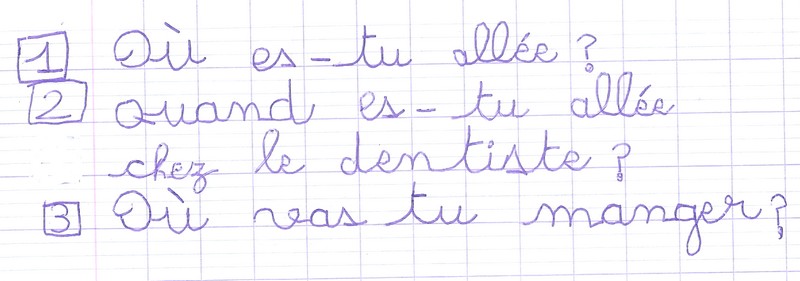 1 Où es-tu allée ?
2 Quand es-tu allée
chez le dentiste ?
3 Où vas tu manger ?